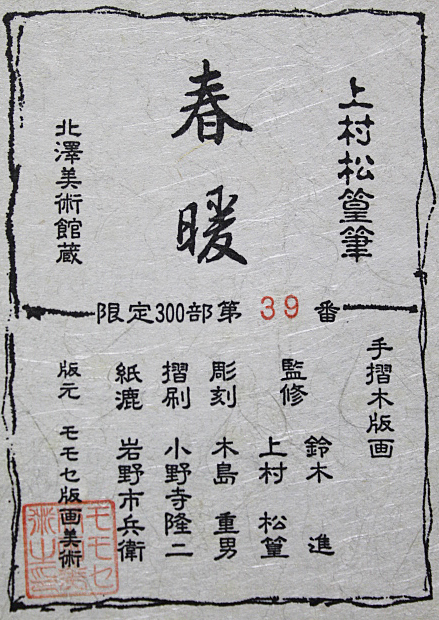 上村松篁筆
春暖
北澤美術館蔵
限定300部第 39 番
手摺木版画
監修 鈴木 進
上村 松篁
彫刻 木島 重男
摺刷 小野寺隆二
紙漉 岩野市兵衛
版元 モモセ版画美術